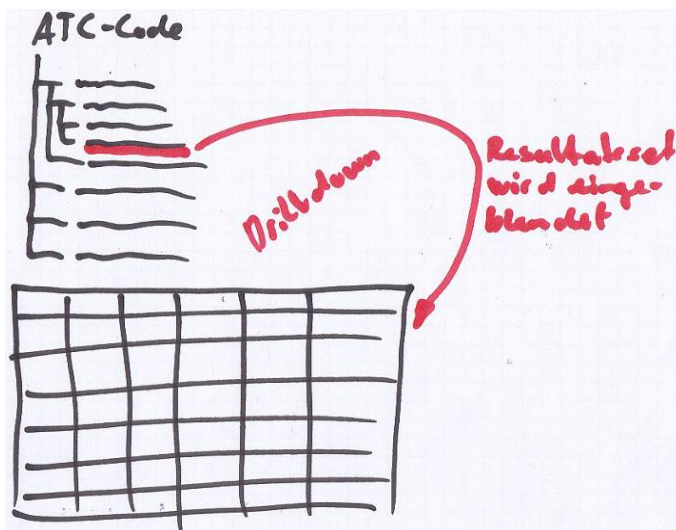 ATC-Code
Drilldown
Resultatset
wird einge-
blendet